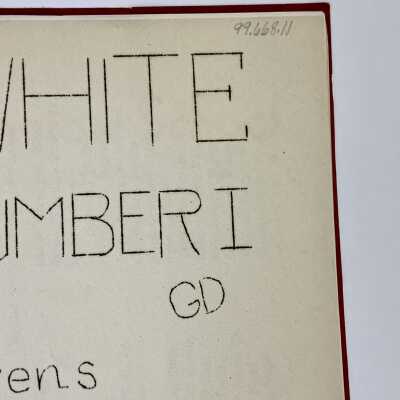 99.668.11
WHITE
UMBER I
GD
ens